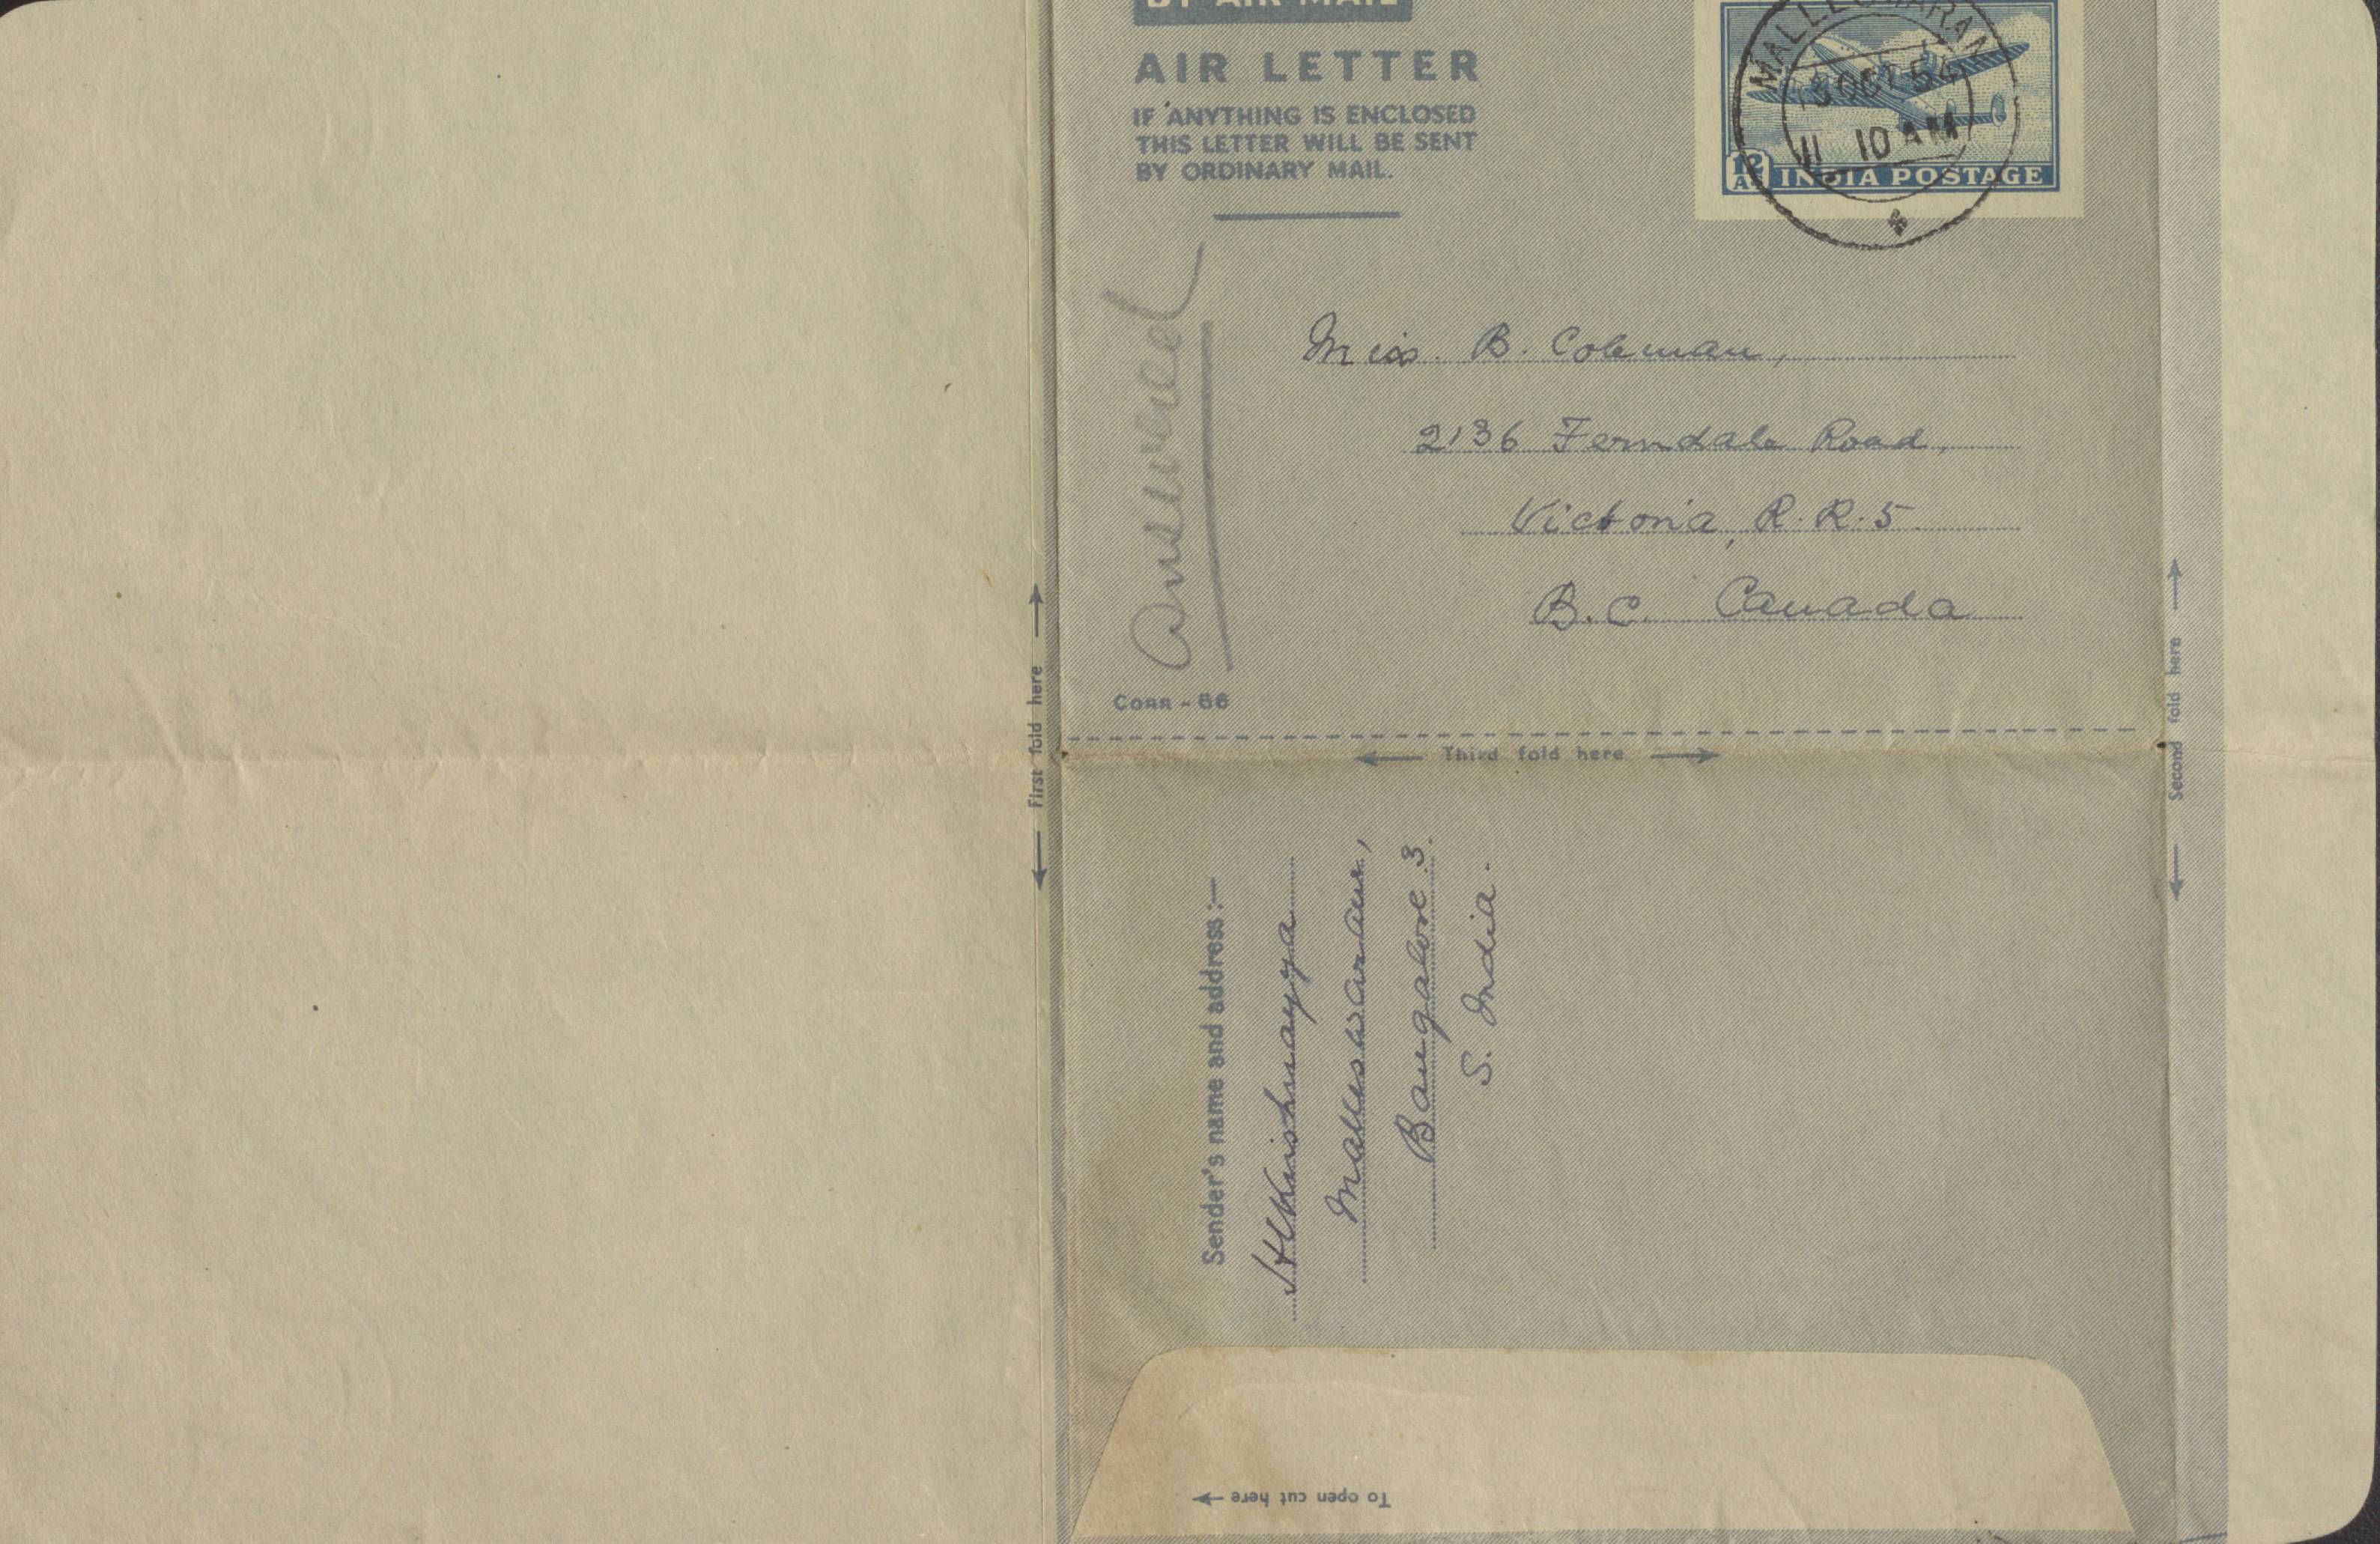 BY AIR MAIL
AIR LETTER
IF ANYTHING IS ENCLOSED
THIS LETTER WILL BE SENT
BY ORDINARY MAIL.
MALLESWARAM
13 OCT 54
11 10 AM
12
AS
INDIA POSTAGE
answered
Miss. B. Coleman,
2136 Ferndale Road,
Victoria, R.R.5
B.C. Canada
CORR - 56
First fold here
Second fold here
Third fold here
Sender's name and address:—
H Krishnayya
Malleswaram,
Bangalore 3.
S. India.
To open cut here